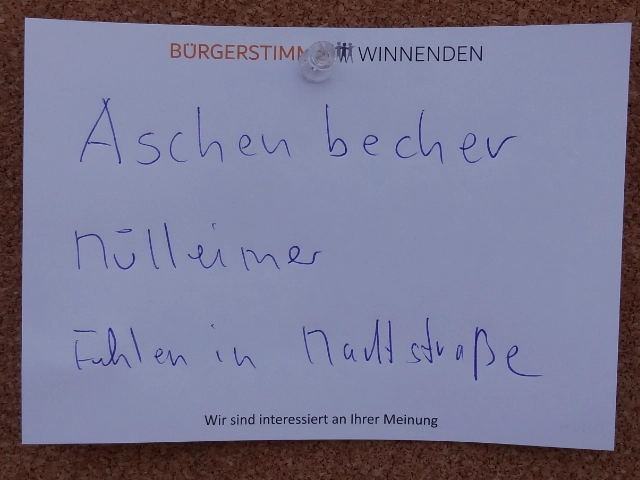 BÜRGERSTIMM WINNENDEN
Aschenbecher
Mülleimer
Fehlen in Marktstraße
Wir sind interessiert an Ihrer Meinung